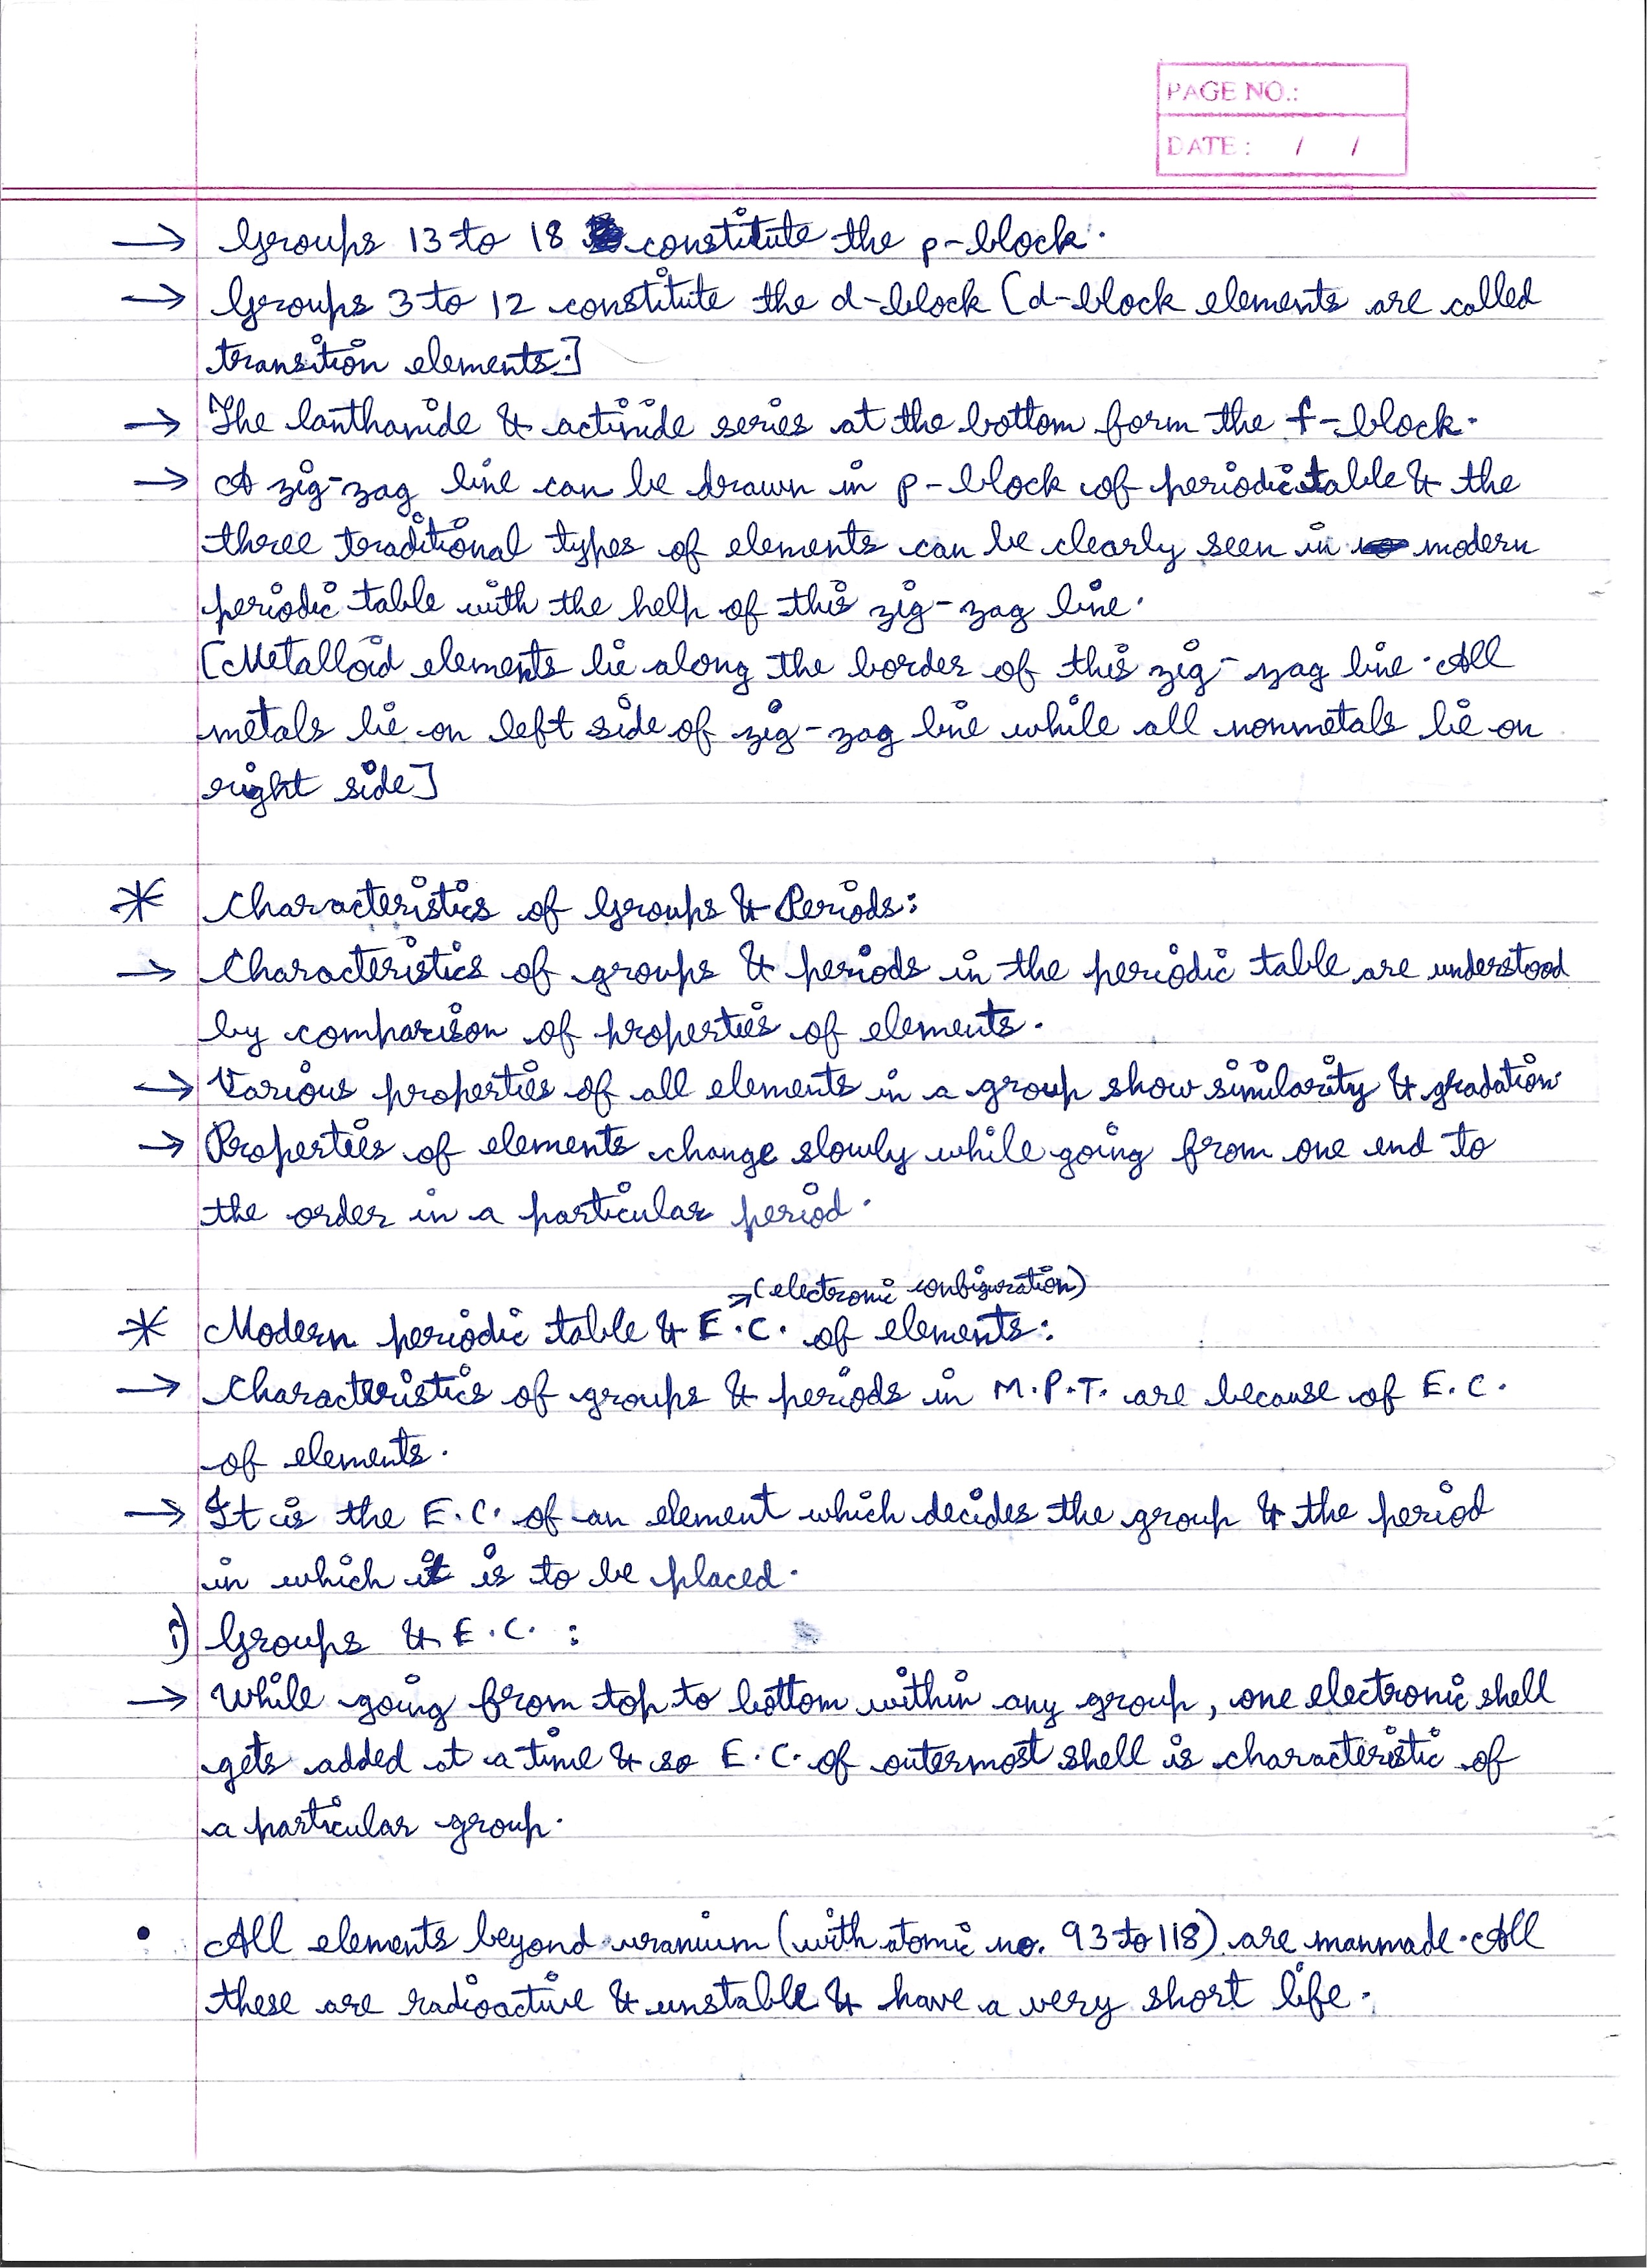 PAGE NO.:
DATE: / /
→ Groups 13 to 18 constitute the p-block.
→ Groups 3 to 12 constitute the d-block [d-block elements are called
transition elements.]
→ The lanthanide & actinide series at the bottom form the f-block.
→ A zig-zag line can be drawn in p-block of periodic table & the
three traditional types of elements can be clearly seen in modern
periodic table with the help of this zig-zag line.
[Metalloid elements lie along the border of this zig-zag line. All
metals lie on left side of zig-zag line while all nonmetals lie on
right side]
* Characteristics of Groups & Periods:
→ Characteristics of groups & periods in the periodic table are understood
by comparison of properties of elements.
→ Various properties of all elements in a group show similarity & gradation
→ Properties of elements change slowly while going from one end to
the order in a particular period.
→ (electronic configuration)
* Modern periodic table & E.C. of elements:
→ Characteristics of groups & periods in M.P.T. are because of E.C.
of elements.
→ It is the E.C. of an element which decides the group & the period
in which it is to be placed.
i) Groups & E.C. :
→ While going from top to bottom within any group, one electronic shell
gets added at a time & so E.C. of outermost shell is characteristic of
a particular group.
• All elements beyond uranium (with atomic no. 93 to 118) are manmade. All
these are radioactive & unstable & have a very short life.